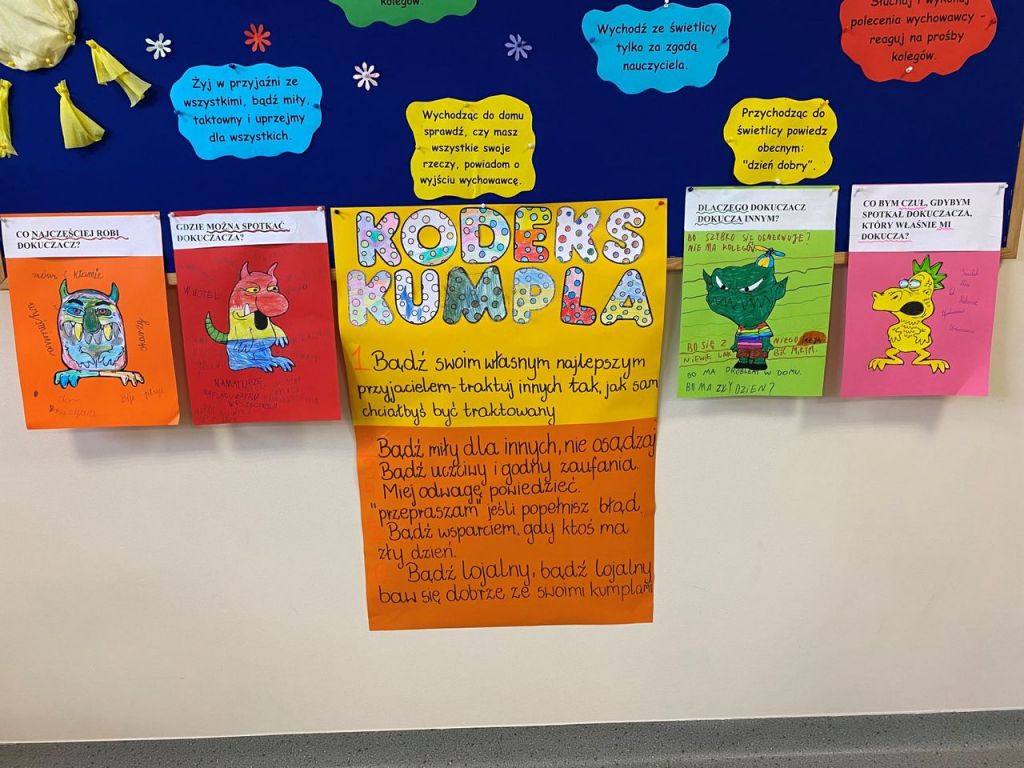 kolegów.
Wychodź ze świetlicy
tylko za zgodą
nauczyciela.
Słuchaj i wykonaj
polecenia wychowawcy -
reaguj na prośby
kolegów.
Żyj w przyjaźni ze
wszystkimi, bądź miły,
taktowny i uprzejmy
dla wszystkich.
Wychodząc do domu
sprawdź, czy masz
wszystkie swoje
rzeczy, powiadom o
wyjściu wychowawcę.
Przychodząc do
świetlicy powiedz
obecnym:
"dzień dobry".
CO NAJCZĘŚCIEJ ROBI
DOKUCZACZ?
mówi i kłamie
wyśmiewa
GDZIE MOŻNA SPOTKAĆ
DOKUCZACZA?
KODEKS
KUMPLA
1. Bądź swoim własnym najlepszym
przyjacielem-traktuj innych tak, jak sam
chciałbyś być traktowany
Bądź miły dla innych, nie osądzaj
Bądź uczciwy i godny zaufania.
Miej odwagę powiedzieć.
"przepraszam" jeśli popełnisz błąd.
Bądź wsparciem, gdy ktoś ma
zły dzień.
Bądź lojalny, bądź lojalny
baw się dobrze ze swoimi kumplami
DLACZEGO DOKUCZACZ
DOKUCZA INNYM?
BO SZYBKO SIĘ DENERWUJE?
NIE MA KOLEGÓW
BO SIĘ Z NIEGO
NIEWIE JAK BYĆ MIŁYM.
BO MA PROBLEMY W DOMU.
BO MA ZŁY DZIEŃ?
CO BYM CZUŁ, GDYBYM
SPOTKAŁ DOKUCZACZA,
KTÓRY WŁAŚNIE MI
DOKUCZA?